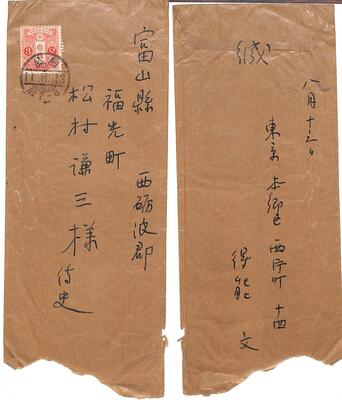 富山縣
西砺波郡
福光町
松村謙三様
侍史
緘
八月十三日
東京本郷区西片町十四
得能文